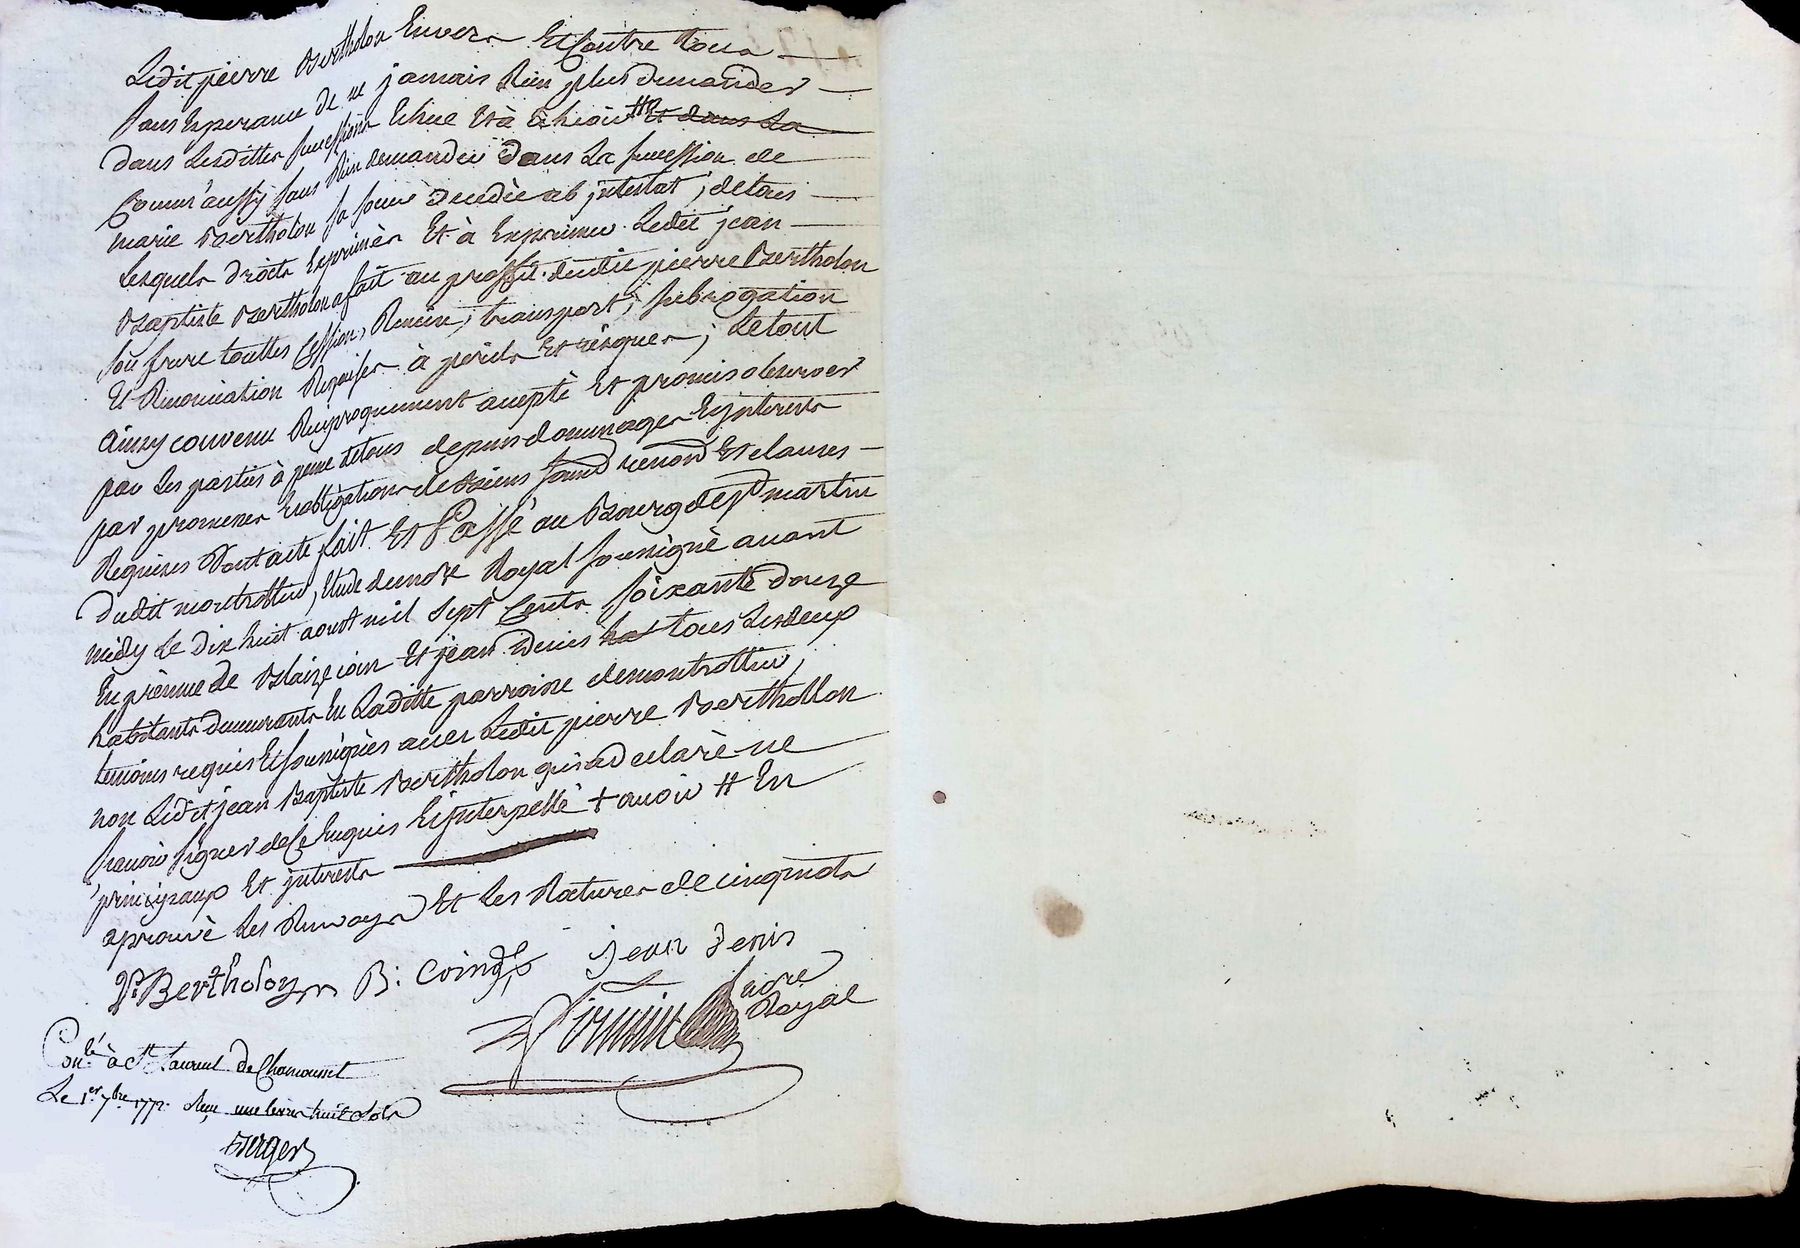 Ledit pierre Bertholon Envers Et Contre tous
sans Esperance de ne jamais Rien plus demander
dans Lesdittes successions Echue Et à Echeoir # Et dans La
Comm'aussy sans Rien demander dans La succession de
marie Bertholon sa soeur decedée ab jntestat, de tous
Lesquels droits Exprimés Et à Exprimer Ledit jean
Baptiste Bertholon a fait au proffit dudit pierre Bertholon
son frere touttes Cession, Remise, transport, subrogation
Et Renonciation Requises à perils Et risques, Le tout
ainsy convenu Reciproquement accepté Et promis observer
par Les parties à peine de tous depens dommages Et jnterests
par promesses Et obligations de Biens soumd renond Et clauses
Requises Dont acte fait Et Passé au Bourg de st martin
dudit montrottier, Etude du nore Royal soussigné avant
midy Le dix huit aoust mil sept Cents soixante douze
En presence de Blaize coin Et jean denis tous Les deux
habitants demeurants En Laditte parroisse de montrottier,
temoins requis Et soussignés avec Ledit pierre Berthollon
non Ledit jean Baptiste Bertholon qui a declaré ne
scavoir signer de Ce Enquis Et jnterpellé + avoir # En
principaux Et jnterests
aprouvé Les Renvoys Et Les Ratures de cinq mots
P. Bertholon B: Coing jean denis
nore
Royal
Conlé à St Laurent De Chamousset
Le 1er 7bre 1772. Reçu une livre huit sols
Berger